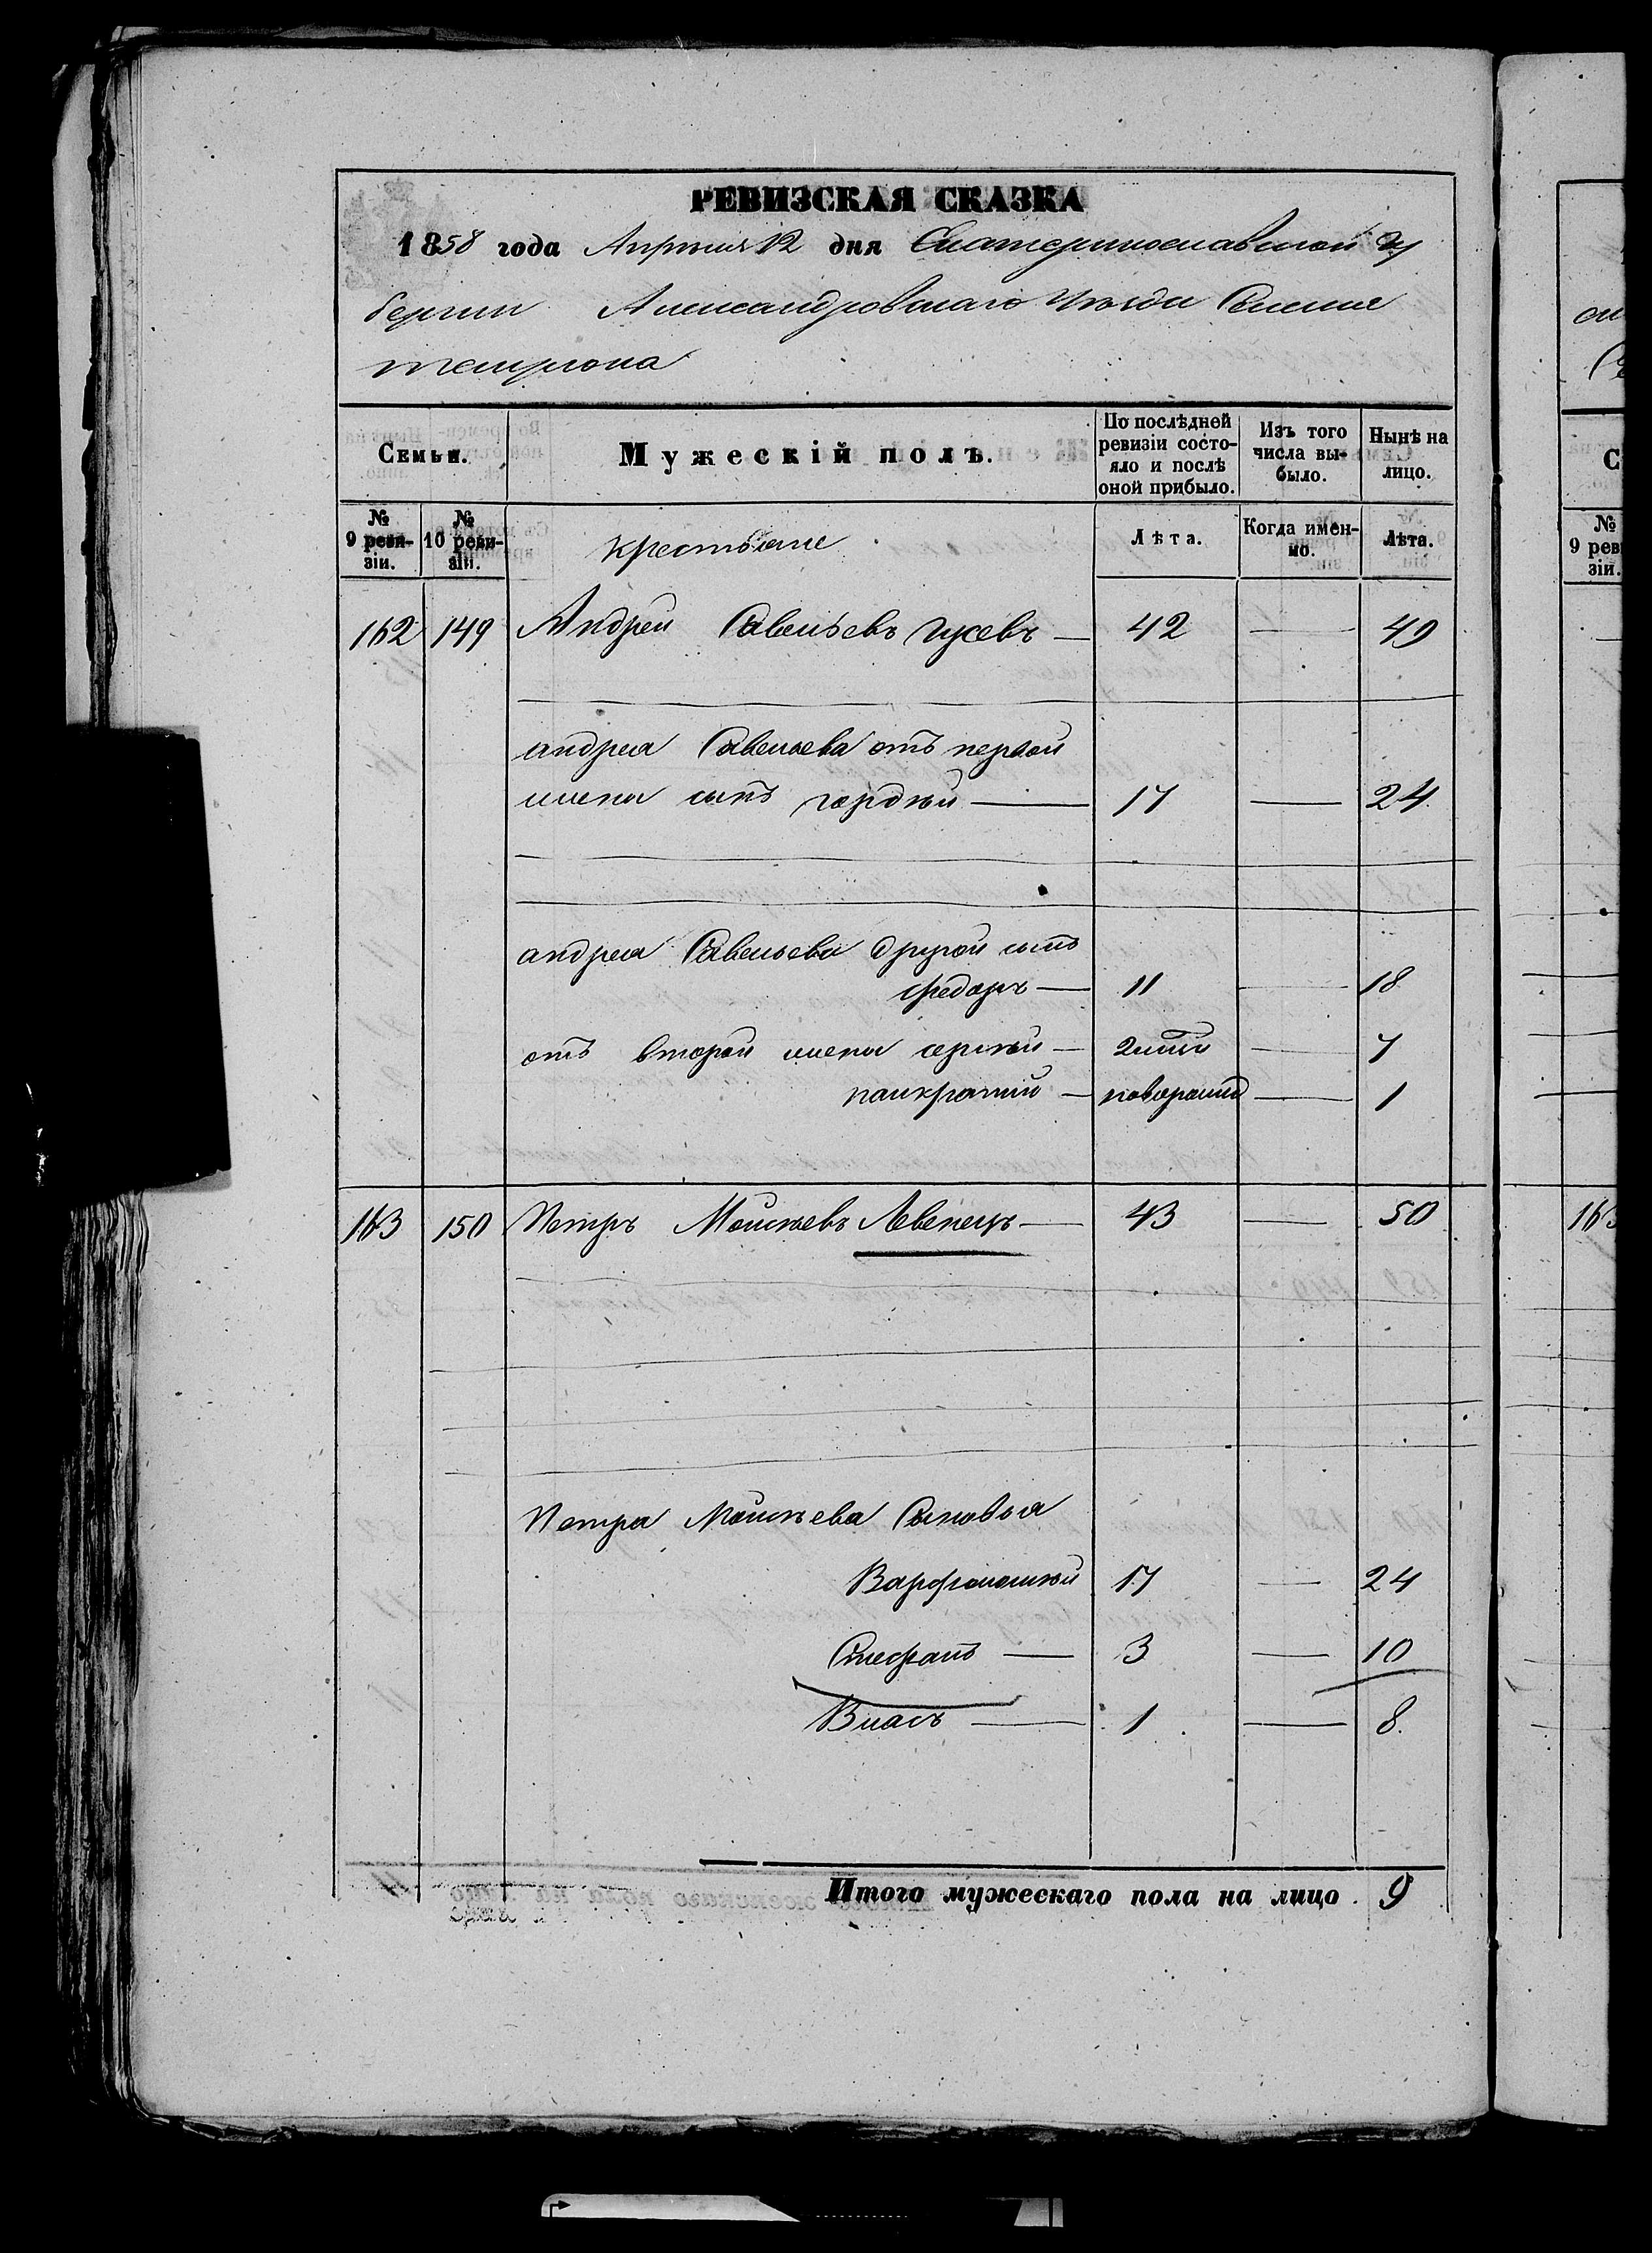 РЕВИЗСКАЯ СКАЗКА
1858 года Апрѣля 12 дня Екатеринославской гу
берніи Александровскаго уѣзда Селенія
темрюка
Семьи. Мужескій полъ. По послѣдней ревизіи состояло и послѣ оной прибыло. Изъ того числа выбыло. Нынѣ на лицо.
№ 9 ревизіи. № 10 ревизіи. крестьяне Лѣта. Когда именно. Лѣта.
162 149 Андрей Савельевъ Гусевъ — 42 — 49
андрея Савельева отъ первой
жены сынъ гордѣй — 17 — 24
андрея Савельева другой сынъ
федоръ — 11 — 18
отъ второй жены сергѣй — — 7
панкратий — новорожд — 1
163 150 Петръ Моисѣевъ Левенецъ — 43 — 50
Петра Моисѣева Сыновья
Варфоломѣй 17 — 24
Стефанъ — 3 — 10
Власъ — 1 — 8
Итого мужескаго пола на лицо . 9
С
№
9 рев
зіи.
163